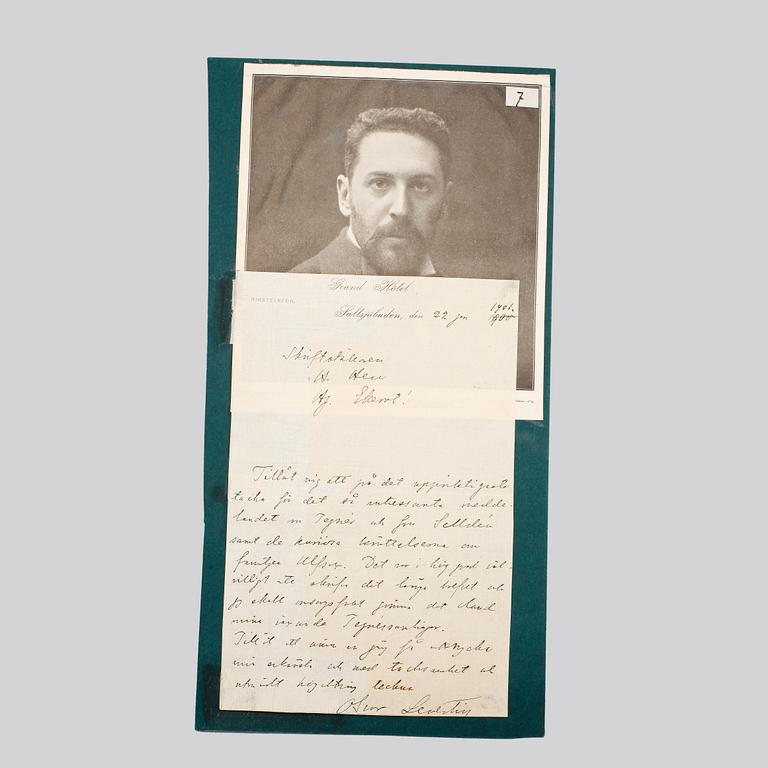 7
Grand Hôtel
RIKSTELEFON.
Saltsjöbaden, den 22 jan 1901.
1900
Skriftställaren
H. Herr
Hj. Ekerot!
Tillåt mig att på det uppriktigaste
tacka för det så intressanta medde-
landet om Tegnér och fru Selldén
samt de kuriösa berättelserna om
familjen Ulfsax. Det var i hög grad väl-
villigt att skrifva det långa brefvet och
jag skall omsorgsfullt gömma det bland
mina Tegnérssamlingar.
Tillåt att än en gång få uttrycka
min och med tacksamhet och
utmärkt högaktning teckna
Oscar Levertin